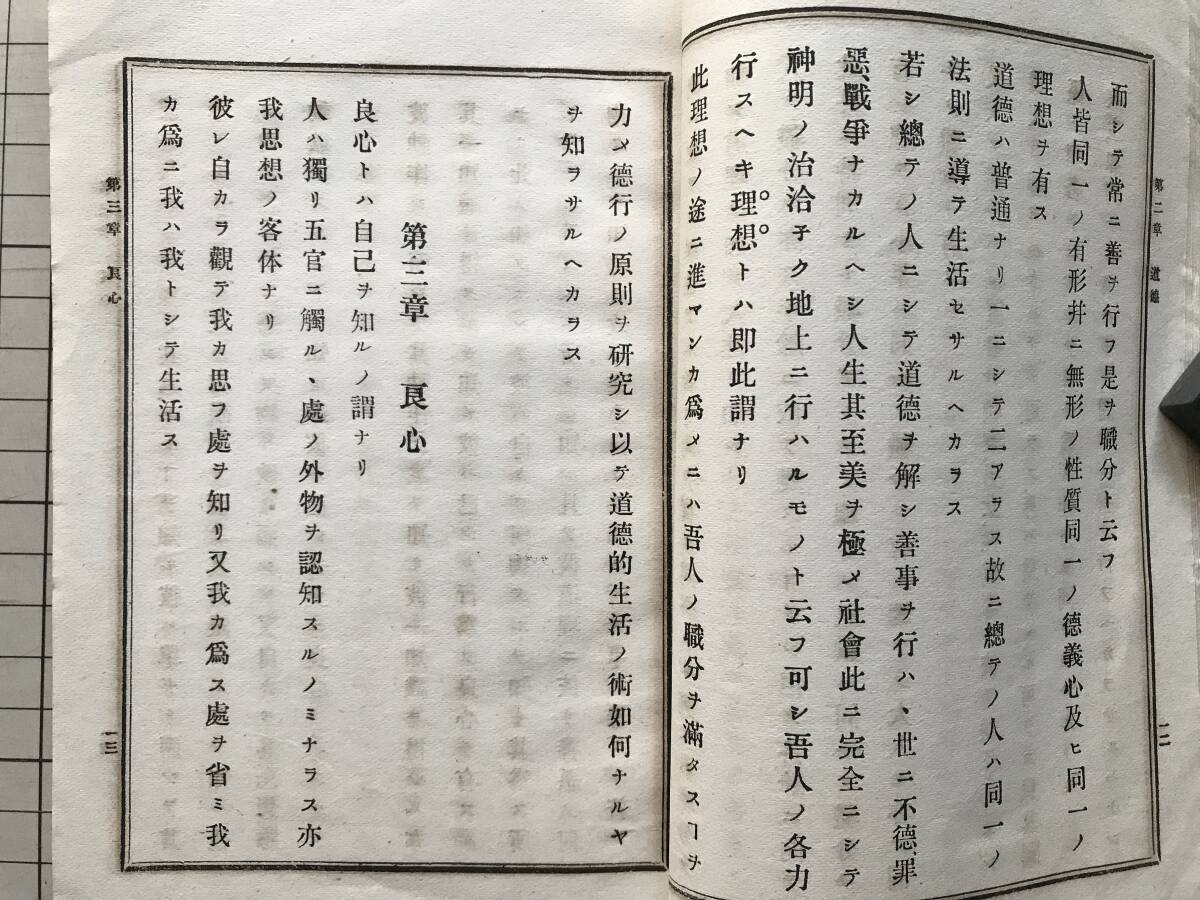 第二章 道德
而シテ常ニ善ヲ行フ是ヲ職分ト云フ
人皆同一ノ有形幷ニ無形ノ性質同一ノ德義心及ヒ同一ノ
理想ヲ有ス
道德ハ普通ナリ一ニシテ二アラス故ニ總テノ人ハ同一ノ
法則ニ導テ生活セサルヘカラス
若シ總テノ人ニシテ道德ヲ解シ善事ヲ行ハヽ世ニ不德、罪
惡、戰爭ナカルヘシ人生其至美ヲ極メ社會此ニ完全ニシテ
神明ノ治洽子ク地上ニ行ハルモノト云フ可シ吾人ノ各力
行スヘキ理想トハ即此謂ナリ
此理想ノ途ニ進マンカ爲メニハ吾人ノ職分ヲ滿タスヿヲ
一二
力メ德行ノ原則ヲ研究シ以テ道德的生活ノ術如何ナルヤ
ヲ知ラサルヘカラス
第三章 良心
良心トハ自己ヲ知ルノ謂ナリ
人ハ獨リ五官ニ觸ルヽ處ノ外物ヲ認知スルノミナラス亦
我思想ノ客体ナリ
彼レ自カラ觀テ我カ思フ處ヲ知リ又我カ爲ス處ヲ省ミ我
カ爲ニ我ハ我トシテ生活ス
第三章 良心
一三